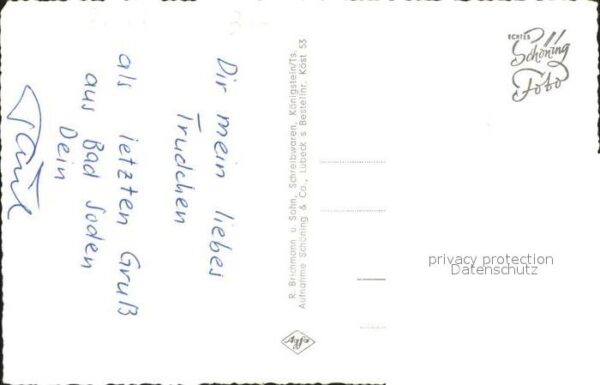 Dir mein liebes
Trudchen
als letzten Gruß
aus Bad Soden
Dein
Paul
R. Brichmann u. Sohn, Schreibwaren, Königstein/Ts.
Aufnahme Schöning & Co., Lübeck s Bestellnr. Köst 53
ECHTES
Schöning
Foto
privacy protection
Datenschutz